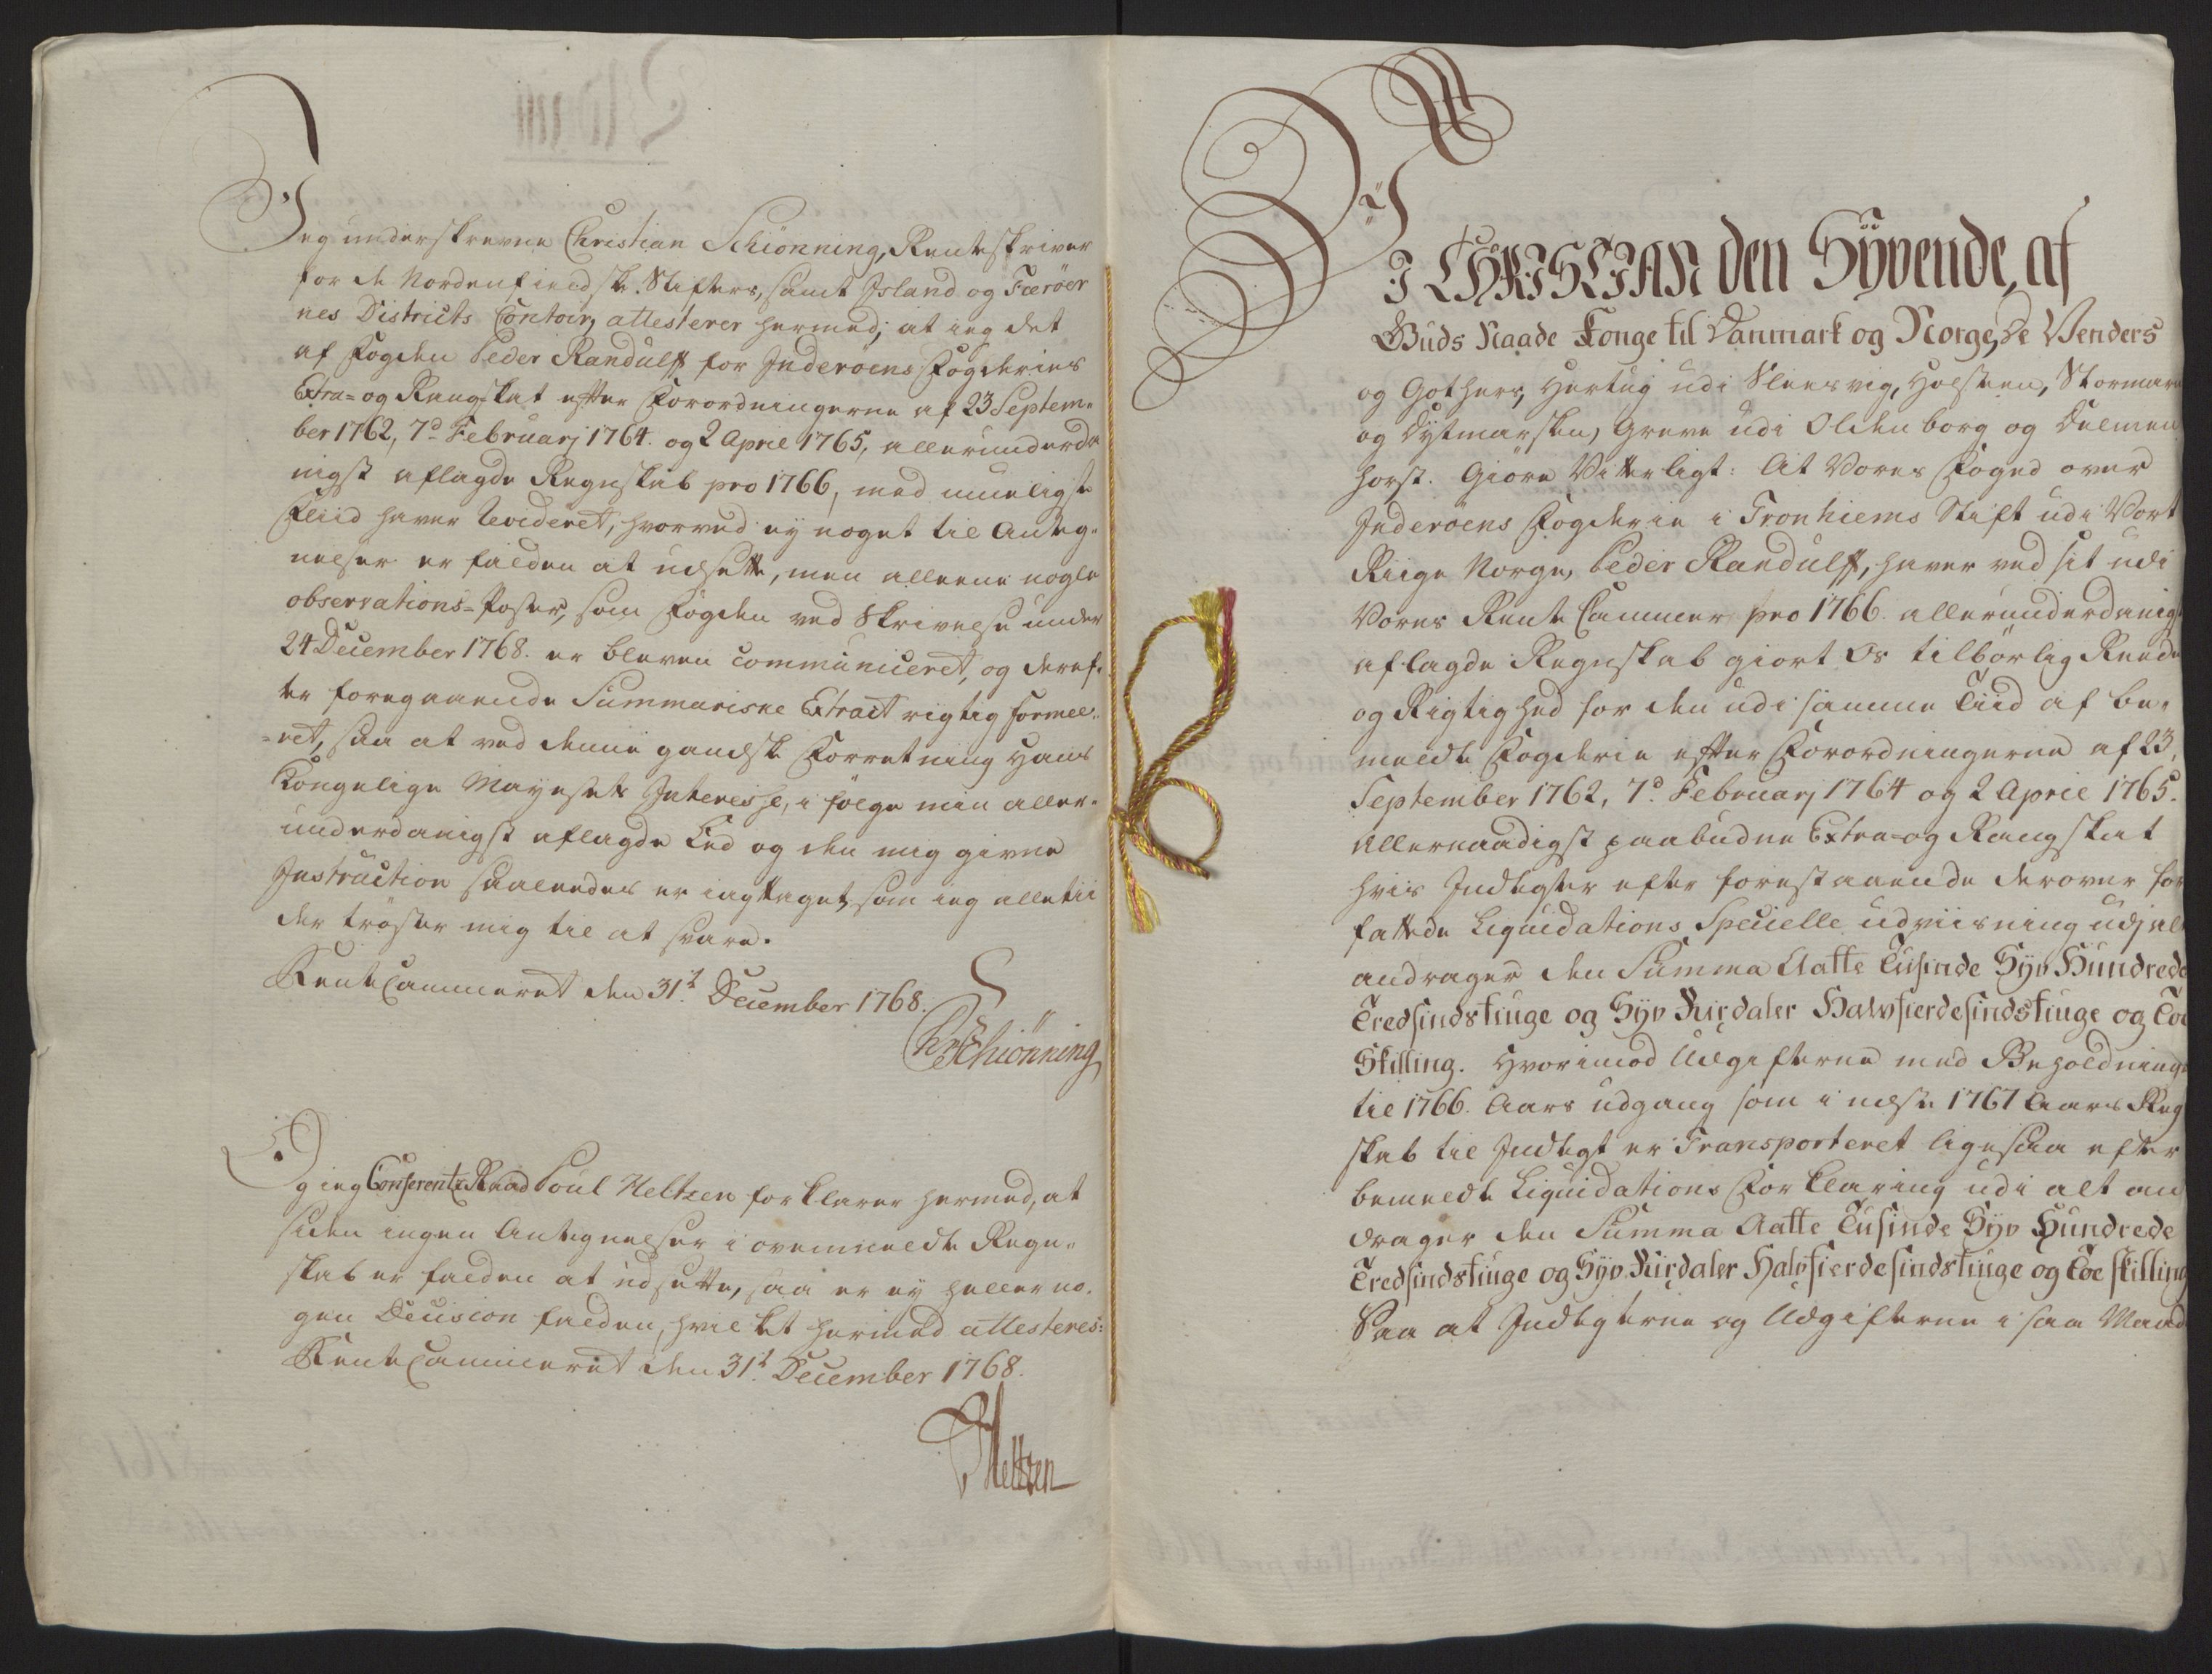 Jeg underskrevne Christian Schiönning, Renteskriver
for de Nordenfieldske Stifters, samt Island og Færöer
nes Districts Contoir, attesterer hermed, at ieg det
af Fogden Peder Randulff for Inderöens Fogderies
Extra- og Rangskat efter Forordningerne af 23 Septem-
ber 1762, 7d Februarj 1764. og 2 April 1765, allerunderda
nigst aflagde Regnskab pro 1766, med mueligste
Fliid haver Revideret, hvorved ey noget til Anteg-
nelser er falden at udsætte, men alleene nogle
observations-Poster, som Fogden ved Skrivelse under
24 December 1768. er bleven communiceret, og deref-
ter foregaaende Summariske Extract rigtig formee-
ret, saa at ved denne gandske Forretning Hans
Kongelige Mayestets Interesse, i fölge min aller-
underdanigst aflagde Eed og den mig givne
Instruction saaleedes er iagttaget, som ieg alletii
der tröster mig til at svare.
RenteCammeret den 31t December 1768.
Chr Schiönning
Og ieg Conferentz Raad Poul Heltzen forklarer hermed, at
siden ingen Antegnelser i ovenmeldte Regn-
skab er falden at udsette, saa er ey heller no-
gen Decision falden, hvilket hermed attesteres:
RenteCammeret den 31t December 1768.
PHeltzen
VJ CHRISTIAN den Syvende, af
Guds Naade Konge til Danmark og Norge, De Venders
og Gothers, Hertug udi Slesvig, Holsteen, Stormarn
og Dytmarsken, Greve udi Oldenborg og Delmen
horst. Giöre Vitterligt: At Vores Foged over
Inderöens Fogderie i Tronhiems Stift udi Vort
Riige Norge, Peder Randulff, haver ved sit udi
Vores Rente Cammer pro 1766. allerunderdanigst
aflagde Regnskab giort Os tilbörlig Reede
og Rigtighed for den udi samme Tiid af be-
meldte Fogderie efter Forordningerne af 23.
September 1762, 7d Februarj 1764 og 2 April 1765.
Allernaadigst paabudne Extra- og Rangskat
hvis Indtegter efter forestaaende derover for
fattede Liquidations Specielle udviisning udj alt
andrager den Summa Aatte Tusinde Syv Hundrede
Tredsindstiuge og Syv Rixdaler Halvfierdesindstiuge og Toe
Skilling. Hvorimod Udgifterne med Beholdning
til 1766. Aars udgang som i neste 1767 Aars Reg
skab til Indtegt er Transporteret ligesaa efter
bemeldte Liquidations Forklaring udi alt an
drager den Summa Aatte Tusinde Syv Hundrede
Tredsindstiuge og Syv Rixdaler Halvfierdesindstiuge og Toe skilling
Saa at Indtegterne og Udgifterne i saa Maade